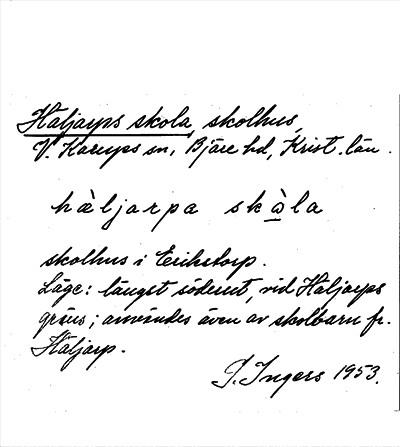 Häljarps skola, skolhus,
V. Karups sn, Bjäre hd, Krist. län.
hàljarpa skò̱la
skolhus i Erikstorp.
Läge: längst söderut, vid Häljarps
gräns; användes även av skolbarn fr.
Häljarp.
I. Ingers 1953.